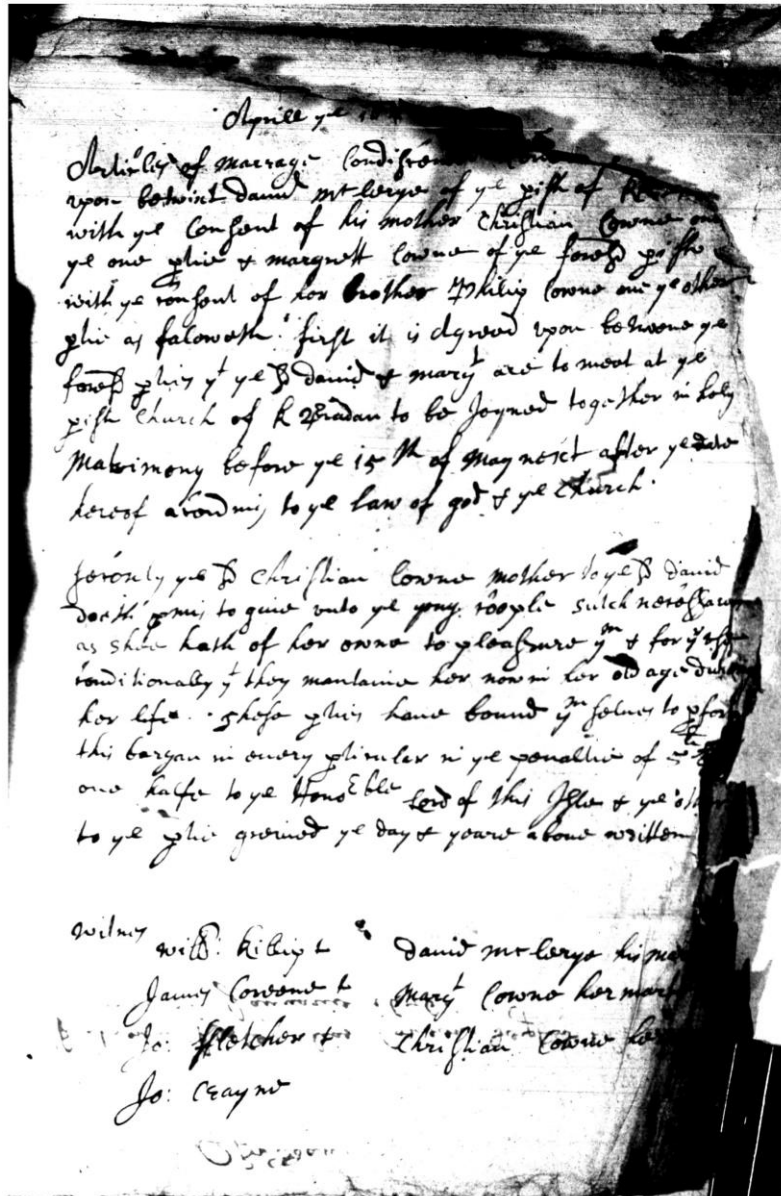 Aprill ye
Articles of marrage Condiscended
upon betwixt david mclerye of ye pish of
with ye Consent of his mother Christian Cowne one
ye one ptie & margrett Cowne of ye foresd pishe
with ye consent of her brother Philip Cowne one ye other
ptie as faloweth. first it is Agreed upon betweene ye
foresd pties yt ye sd david & margt are to meet at ye
pish Church of K Bradan to be Joyned together in holy
Matrimony before ye 15th of May next after ye date
hereof acording to ye law of god & ye Church.
secondly ye sd Christian Cowne mother to ye sd david
doeth pmis to give unto ye yong Coople sutch
as shee hath of her owne to pleasure ym & for
conditionally yt they mantaine her now in her old age
her life. These pties have bound ym selves to
this bargan in every pticular in ye penaltie of
one halfe to ye Honoble Lord of this Isle & ye other
to ye ptie greived ye day & yeare above written
witnes
will: Killip david mcleryehis
James Coweene Margt Cowne her
Jo: ffletcher Christian Cowne
Jo: Crayne